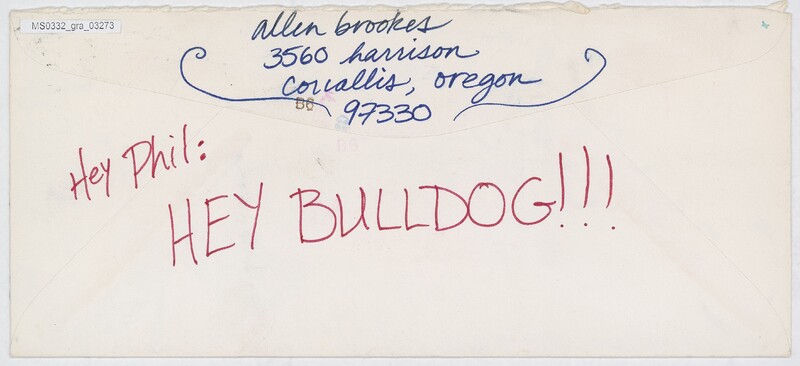 MS0332_gra_03273
allen brookes
3560 harrison
corvallis, oregon
97330
B6
Hey Phil:
HEY BULLDOG!!!